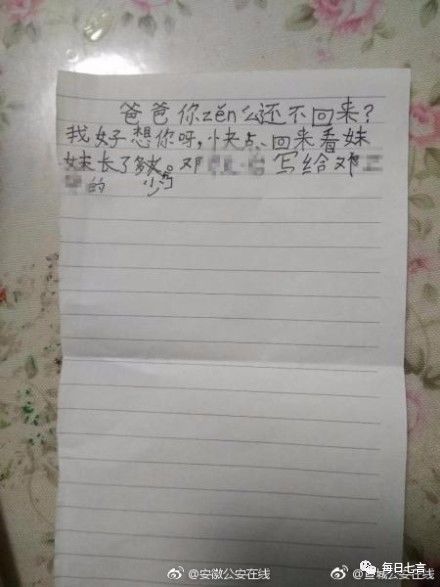 爸爸你zěn么还不回来？
我好想你呀，快点回来看妹
妹长了多少。邓 写给邓
的
@安徽公安在线
每日七言